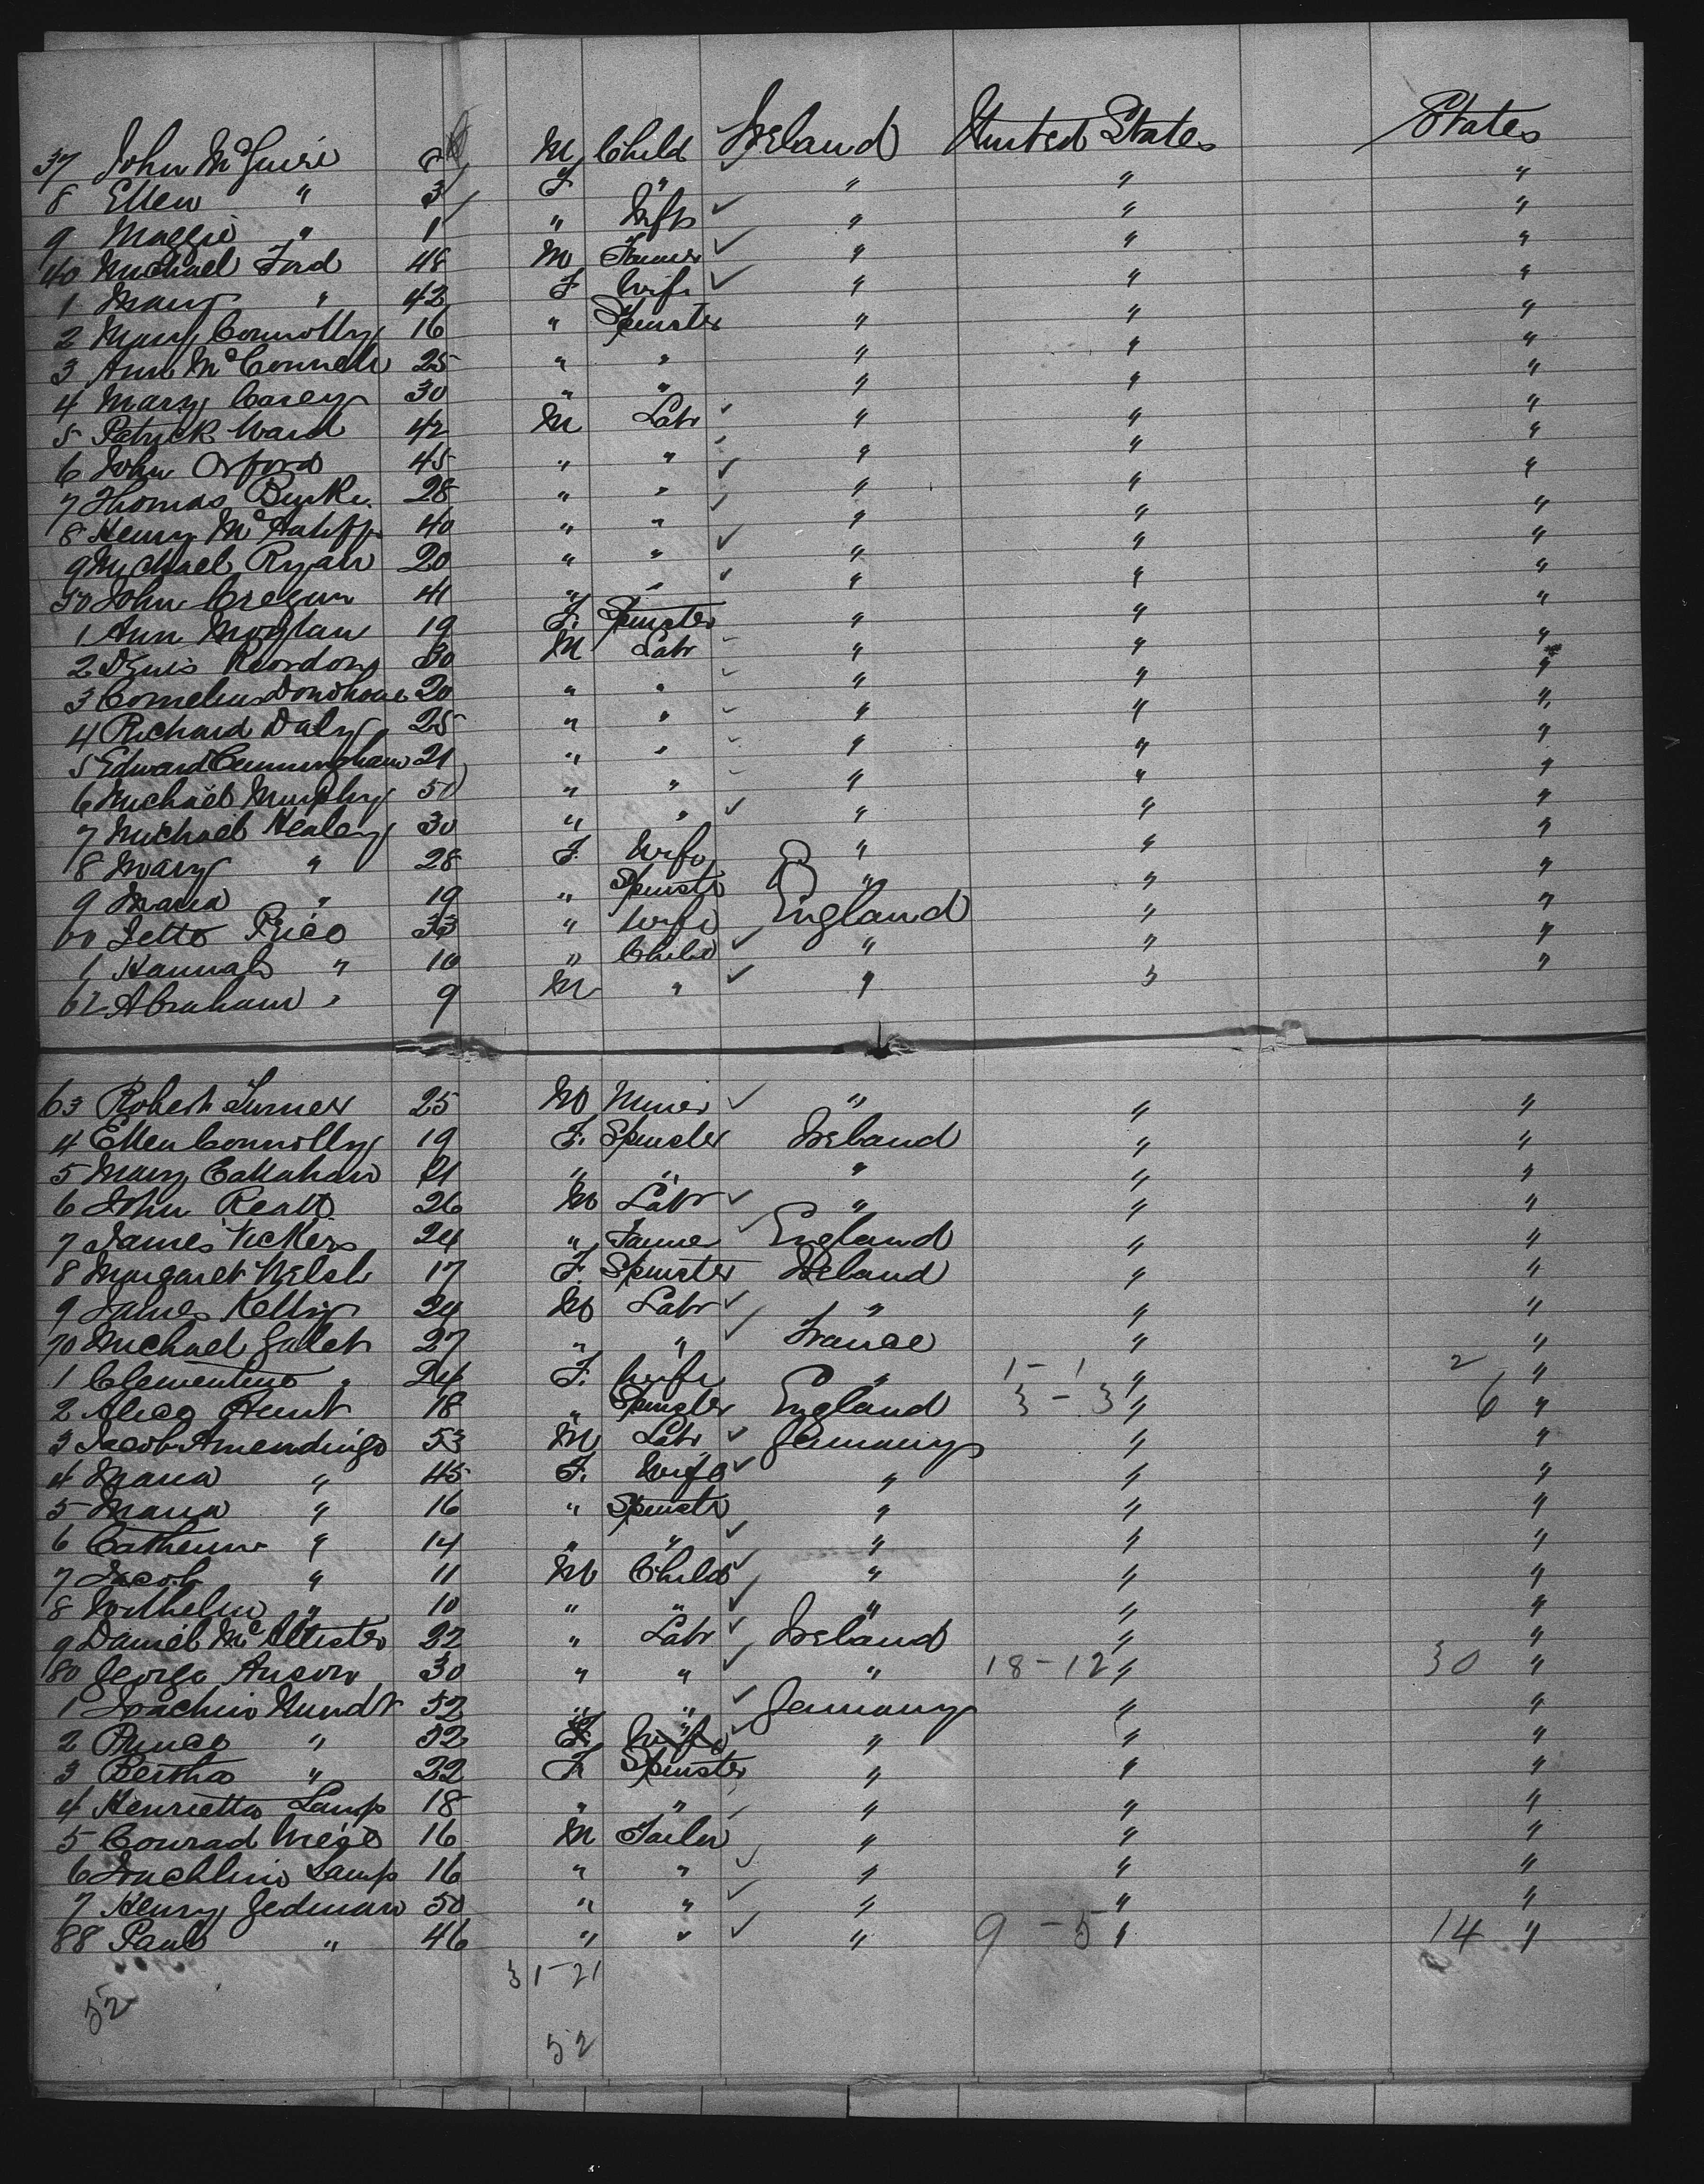 37 John McGuire 8 M Child Ireland United States States
8 Ellen " 3 F " " " "
9 Maggie " 1 " " " "
40 Michael Ford 48 M Farmer " " "
1 Mary " 42 F Wife " " "
2 Mary Connolly 16 " Spinster " " "
3 Ann McConnell 25 " " " " "
4 Mary Carey 30 " " " " "
5 Patrick Ward 42 M Labr " " "
6 John Orford 45 " " " " "
7 Thomas Burke 28 " " " " "
8 Henry 40 " " " " "
9 Michael Ryan 20 " " " " "
50 John Cregan 41 " " " " "
1 Ann 19 F. Spinster " " "
2 Denis Reordon 30 M Labr " " "
3 Cornelius Donohoue 20 " " " " "
4 Richard Daly 25 " " " " "
5 Edward Cunningham 21 " " " " "
6 Michael Murphy 50 " " " " "
7 Michael Healey 30 " " " " "
8 Mary " 28 F. Wife " " "
9 Maria " 19 " Spinstr " " "
60 Price 33 " Wife England " "
1 Hannah " 10 " Child " " "
62 Abraham " 9 M " " " "
63 Robert Turner 25 M Miner " " "
4 Ellen Connolly 19 F. Spinster Ireland " "
5 Mary Callahan 21 " " " " "
6 John 26 M Labr " " "
7 James Vickers 24 " Farmer England " "
8 Margaret Welsh 17 F. Spinster Ireland " "
9 James Kelly 24 M Labr " " "
70 Michael Galet 27 " " France " "
1 Clementine " 24 F. Wife " 1-1 " 2 "
2 Alice Hunt 18 " Spinster England 3-3 " 6 "
3 Jacob Amendinge 53 M Labr Germany " "
4 Maria " 45 F. Wife " " "
5 Maria " 16 " Spinstr " " "
6 Catherine " 14 " " " " "
7 Jacob " 11 M Child " " "
8 Wilhelm " 10 " " " " "
9 Daniel McAllister 22 " Labr Ireland " "
80 George Anson 30 " " " 18-12 " 30 "
1 Joachim Mundt 52 " " Germany " "
2 " 52 " " "
3 Bertha " 22 F Spinster " " "
4 Henrietta Lamp 18 " " " " "
5 Conrad 16 M Tailor " " "
6 Lamp 16 " " " " "
7 Henry Gedman 50 " " " " "
88 Paul " 46 " " " 9-5 " 14 "
31-21
52
52